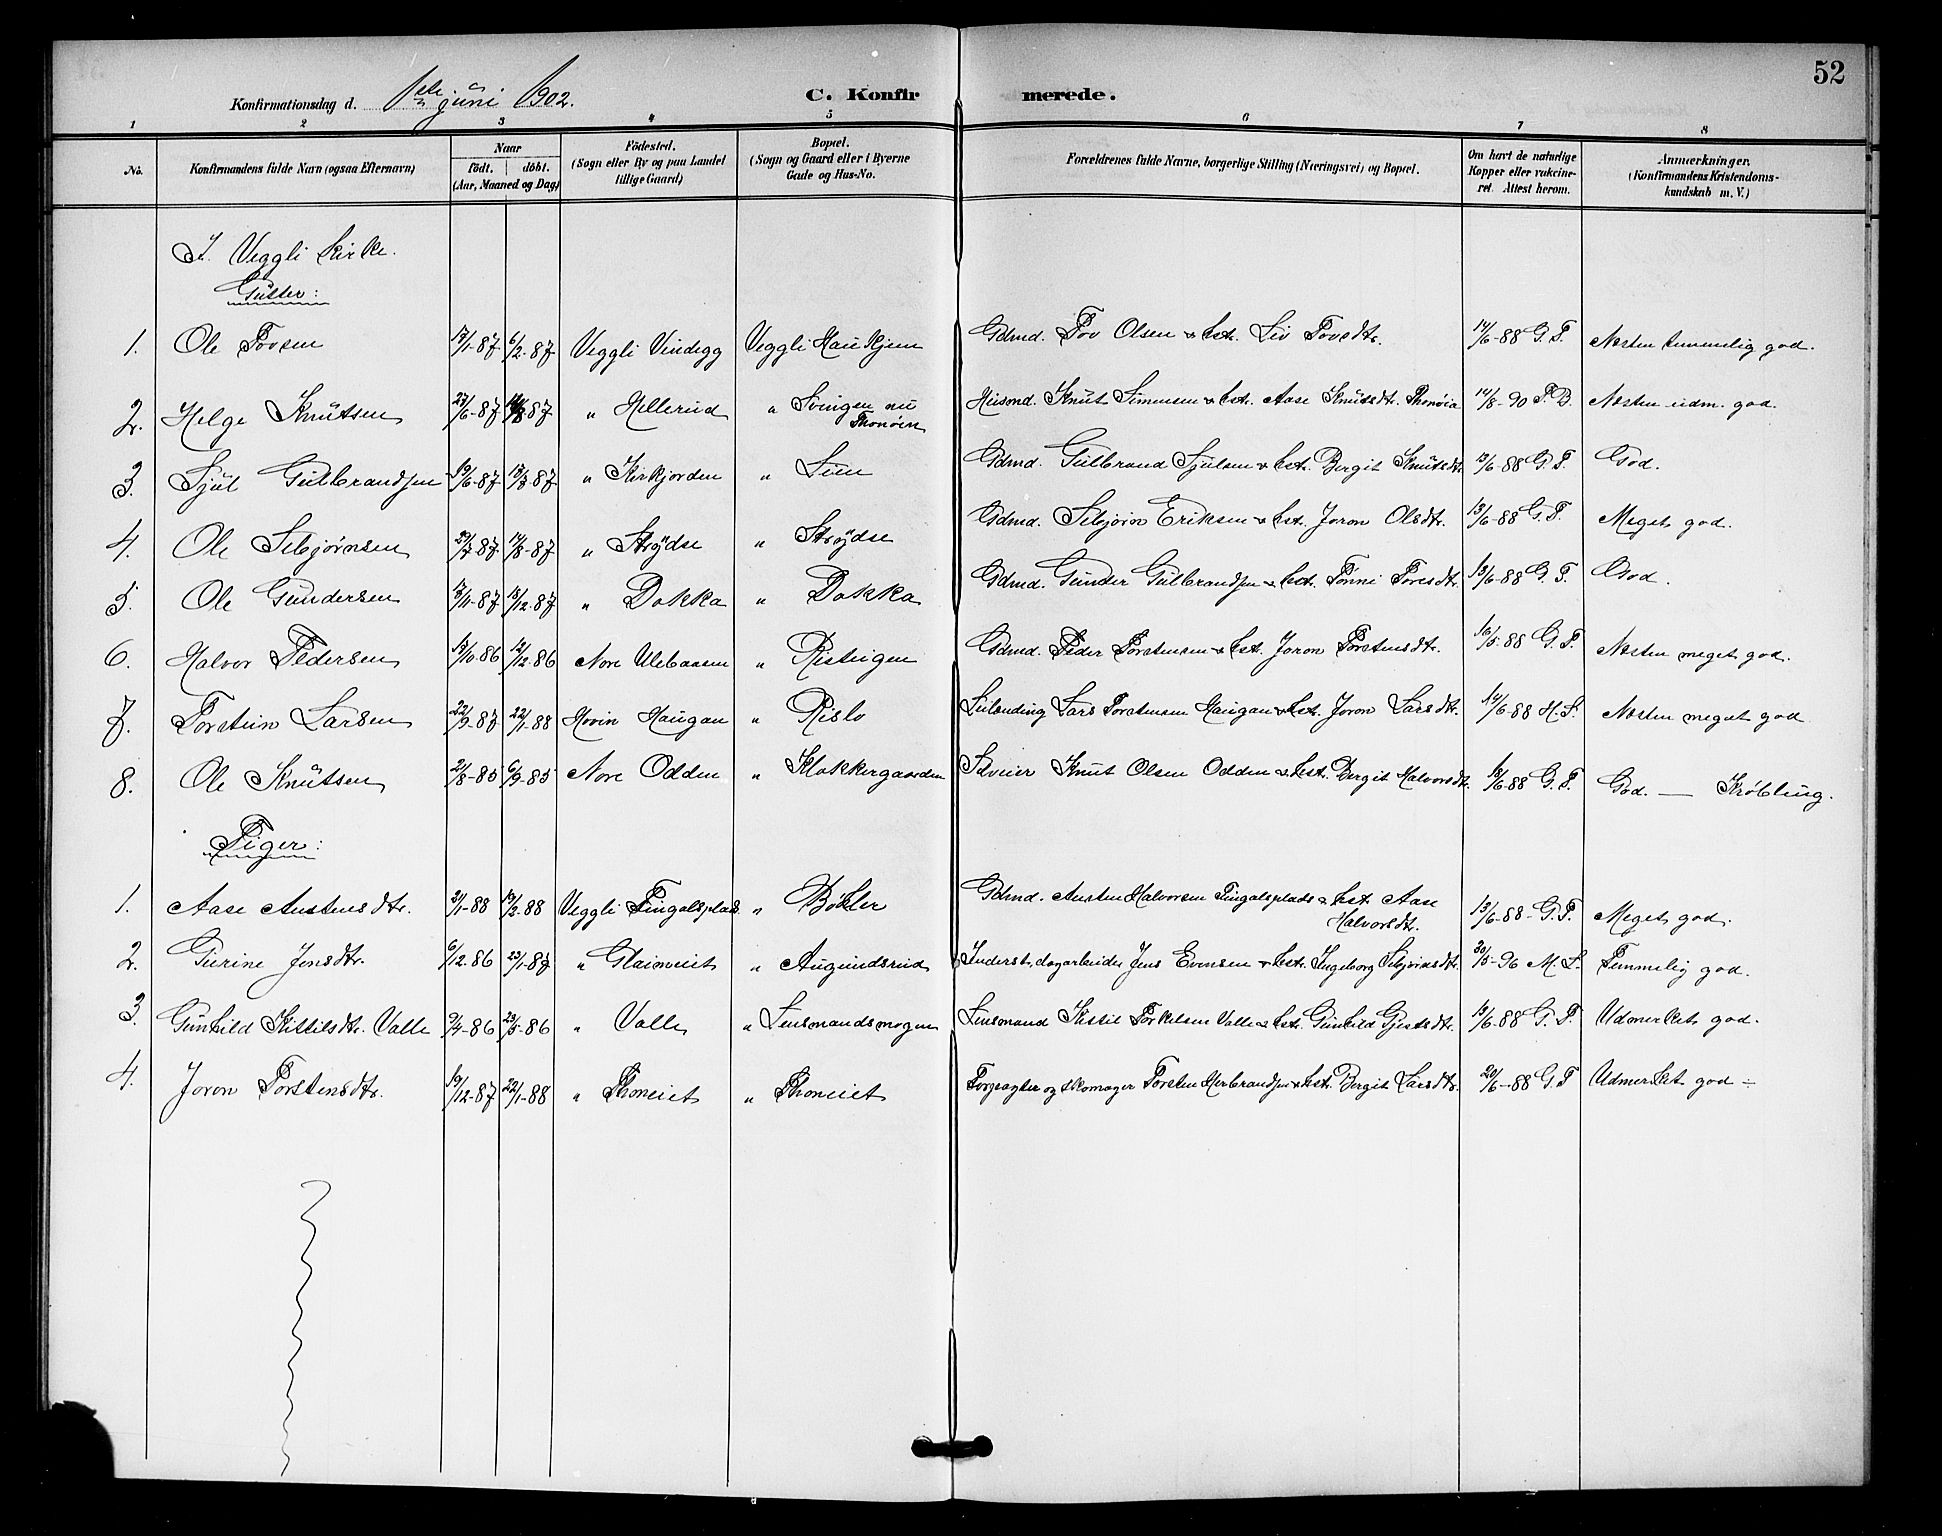 52
Konfirmationsdag d. 1ste juni 1902.
C. Konfirmerede.
1 2 3 4 5 6 7 8
No. Konfirmandens fulde Navn (ogsaa Efternavn) Naar födt. döbt. (Aar, Maaned og Dag) Födested. (Sogn eller By og paa Landet tillige Gaard) Bopæl. (Sogn og Gaard eller i Byerne Gade og Hus-No. Forældrenes fulde Navne, borgerlige Stilling (Næringsvei) og Bopæl. Om havt de naturlige Kopper eller vakcineret. Attest herom. Anmærkninger. (Konfirmandens Kristendomskundskab m. V.)
I. Veggli kirke.
Gutter:
1. Ole Tovsen 17/1-87 6/2-87 Veggli Vindegg Veggli Haukjem Gdmd. Tov Olsen & hst. Liv Tovsdtr. 14/6-88 G.T. Næsten temmelig god.
2. Helge Knutsen 27/6-87 87 " Hellerud " Svingen nu Thonøien Husmd. Knut Simensen & hst. Aase Knutsdt. 14/8-90 P.B. Næsten udm. god.
3. Sjul Gulbrandsen 19/6-87 87 " Kirkjorden " Lien Gdmd. Gulbrand Sjulsen & hst. Bergit Knutsdt. 13/6-88 G.T. God.
4. Ole Sebjørnsen 29/7-87 14/8-87 " Strydse " Strydse Gdmd. Sebjørn Eriksen & hst. Joron Olsdtr. 13/6-88 G.T. Meget god.
5. Ole Gundersen 17/11-87 18/12-87 " Dokka " Dokka Gdmd. Gunder Gulbrandsen & hst. Tønne Toresdtr. 13/6-88 G.T. God.
6. Halvor Pedersen 13/10-86 12/12-86 Nore Ulebaasen " Ristingen Gdmd. Peder Torstensen & hst. Joron Torstensdtr. 16/5-88 G.T. Næsten meget god.
7. Torstein Larsen 22/9-87 22/1-88 Hovin Haugan " Rislo Leilænding Lars Torstensen Haugan & hst. Joron Larsdtr. 14/6-88 H.S. Næsten meget god
8. Ole Knutsen 21/8-85 6/9-85 Nore Odden " Klokkergaarden Selveier Knut Olsen Odden & hst. Bergit Halvorsdtr. 13/6-88 G.T. God. — Krøbling.
Piger:
1. Aase Austensdtr. 21/1-88 19/2-88 Veggli Tingalsplads " Bökler Gdmd. Austen Halvorsen Tingalsplads & hst. Aase Halvorsdtr. 13/6-88 G.T. Meget god.
2. Gurine Jensdtr. 6/12-86 23/1-87 " Glaimeiet " Augundsrud Inderst, dagarbeider Jens Evensen & hst. Ingeborg Sebjørnsdtr. 30/5-96 M.L. Temmelig god.
3. Gunhild Kittilsdtr. Valle 9/4-86 23/5-86 " Valle " Lensmandsmogen Lensmand Kittil Torkelsen Valle & hst. Gunhild Gjestsdtr. 13/6-88 G.T. Udmerket god.
4. Joron Torstensdtr. 19/12-87 22/1-88 " Thoneiet " Thoneiet Forpagter og skomager Torsten Herbrandsen & hst. Bergit Larsdtr. 20/6-88 G.T Udmerket god -